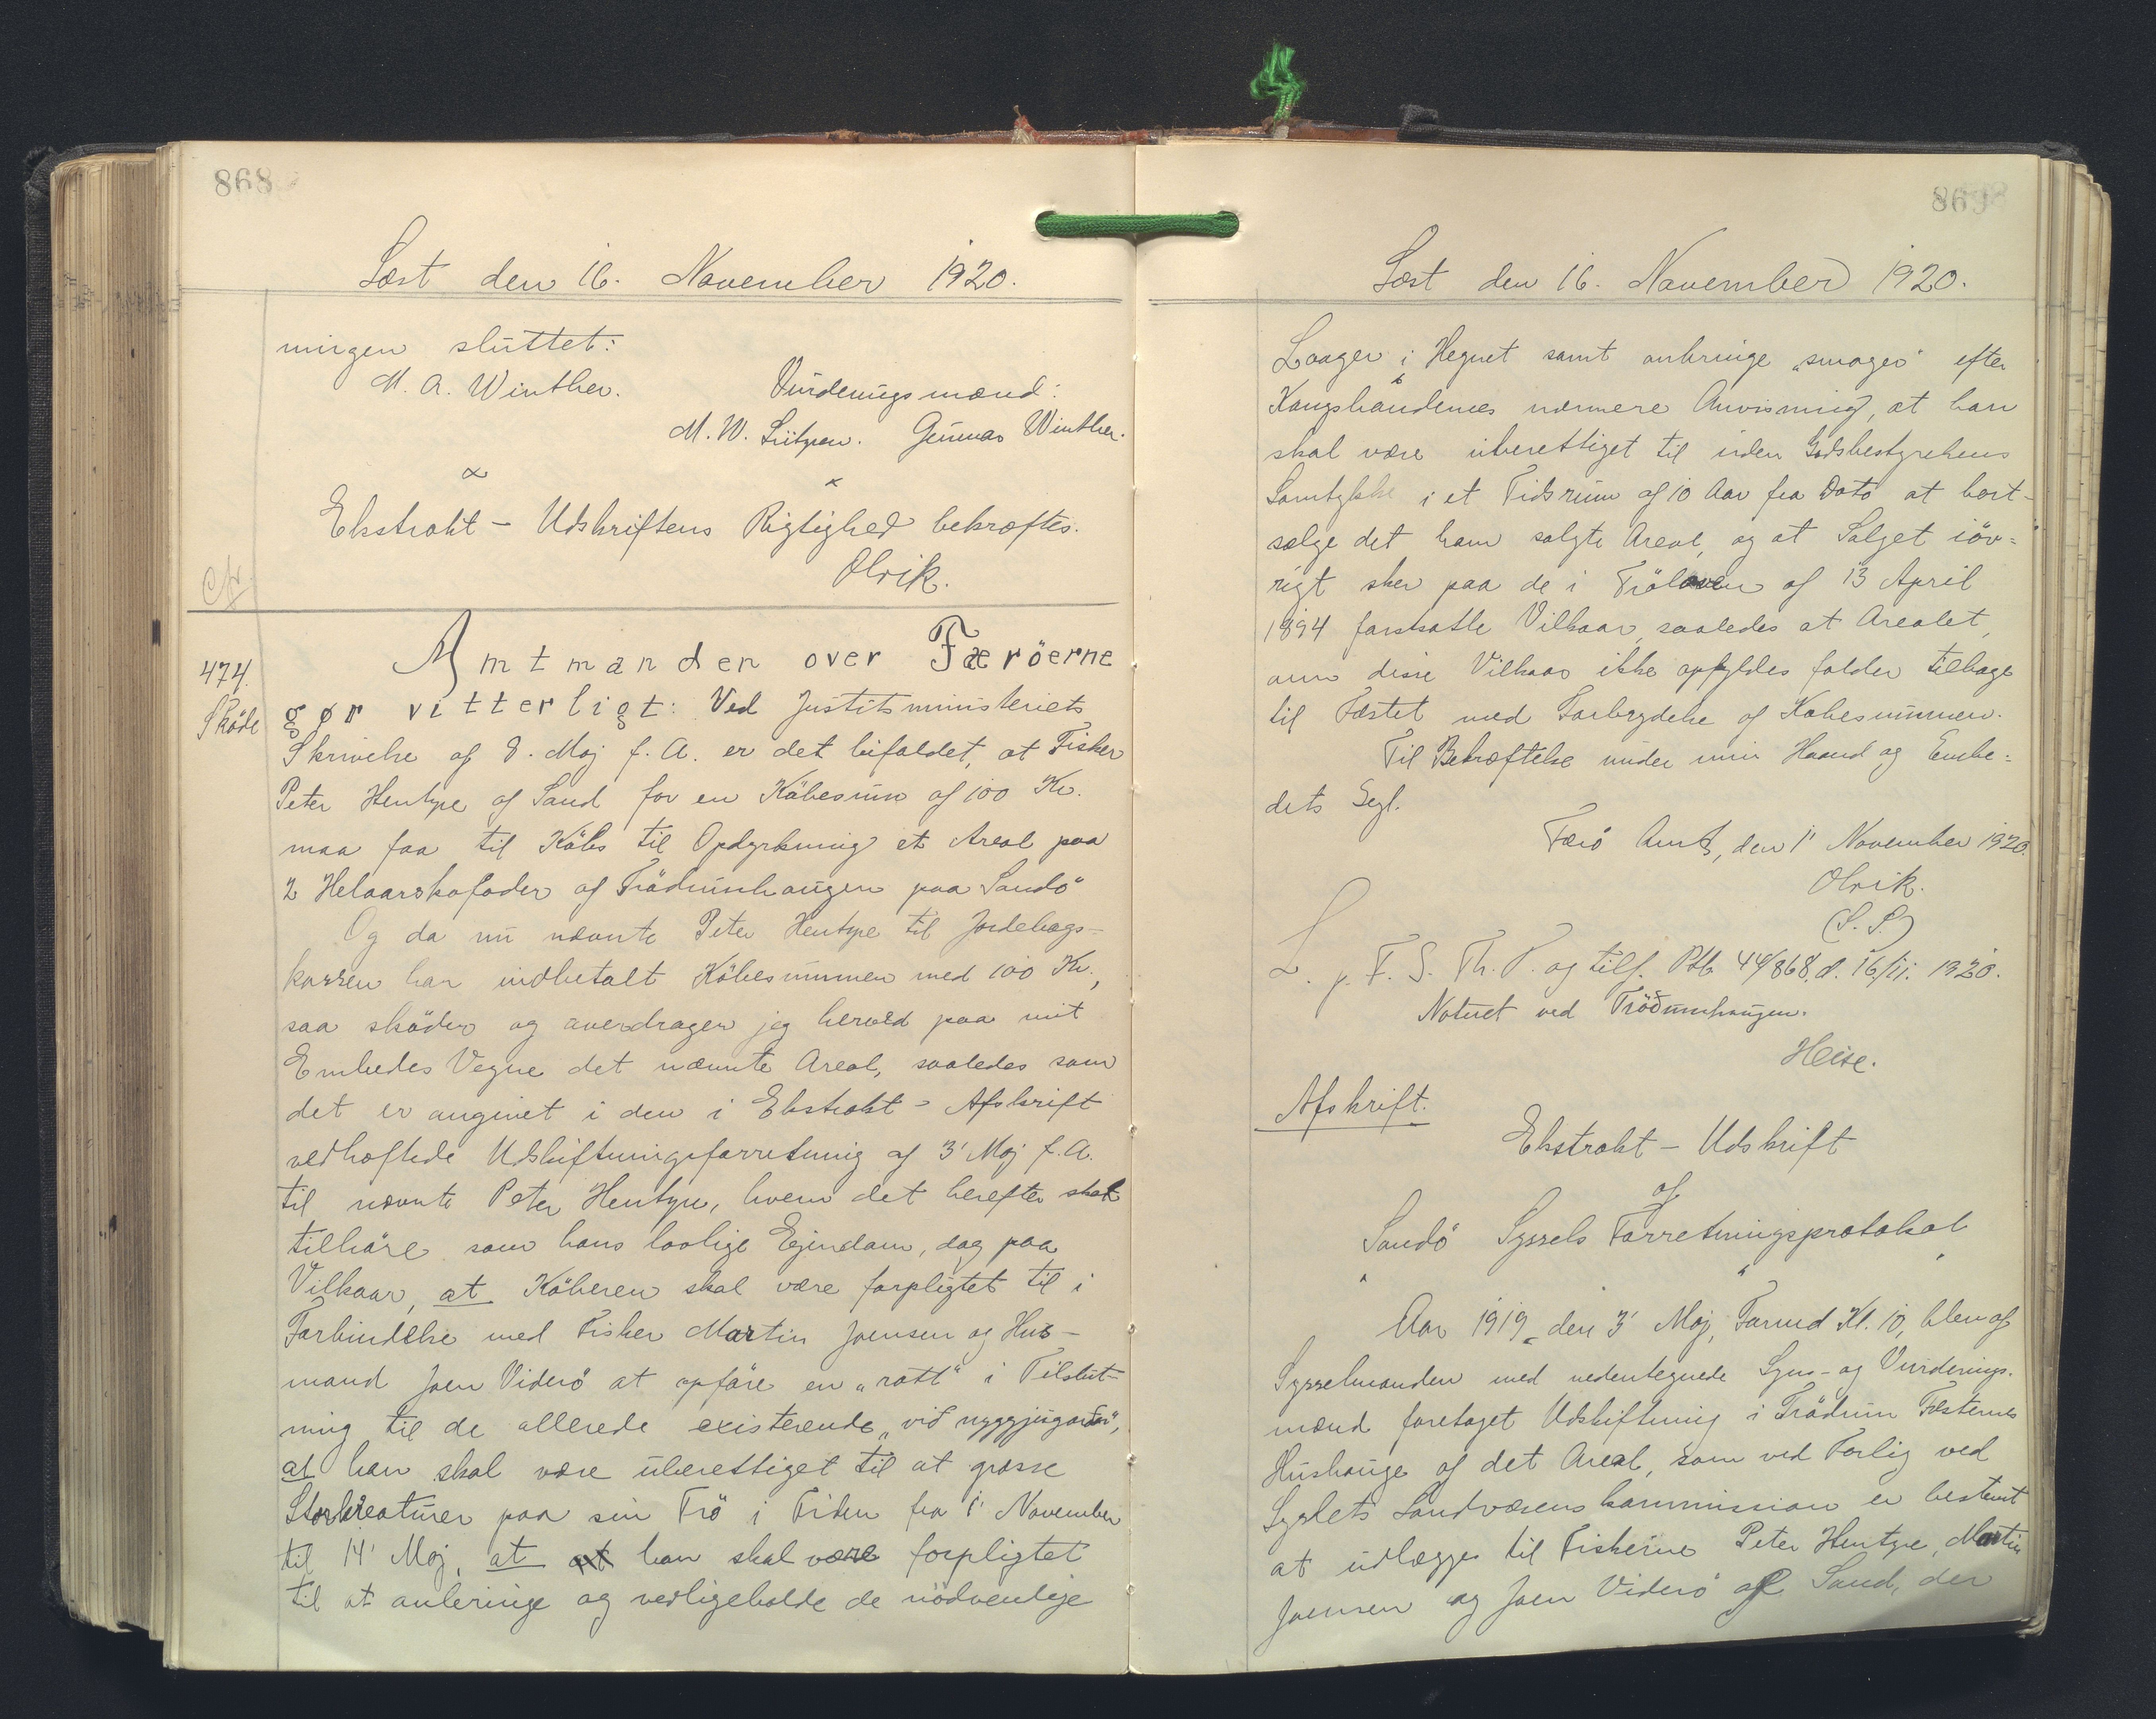 868
Læst den 16. November 1920.
ningen sluttet:
M. A. Winther. Vurderingsmænd:
M. W. Lützen. Gunnar Winther.
Ekstrakt - Udskriftens Rigtighed bekræftes.
Olrik.
474.
Sköde
Amtmanden over Færöerne
gør vitterligt: Ved Justitsministeriets
Skrivelse af 8. Maj f. A. er det bifaldet, at Fisker
Peter Hentze af Sand for en Købesum af 100 Kr.
maa faa til Købs til Opdyrkning et Areal paa
2 Helaarskofoder af Trödumhaugen paa Sandö
Og da nu nævnte Peter Hentze til Jordebogs-
kassen har indbetalt Købesummen med 100 Kr.,
saa sköder og overdrager jeg herved paa mit
Embedes Vegne det nævnte Areal, saaledes som
det er angivet i den i Ekstrakt - Afskrift
vedhæftede Udskiftningsforretning af 3' Maj f. A.
til nævnte Peter Hentze, hvem det herefter skal
tilhöre som hans lovlige Ejendom, dog paa
Vilkaar, at Köberen skal være forpligtet til i
Forbindelse med Fisker Martin Joensen og Hus-
mand Joen Viderö at opföre en "rætt" i Tilslut-
ning til de allerede existerende "við nyggjugarðar",
at han skal være uberettiget til at græsse
Storkreaturer paa sin Trö i Tiden fra 1' November
til 14' Maj, at at han skal være forpligtet
til at anbringe og vedligeholde de nödvendige
869
Læst den 16. November 1920.
Laager i Hegnet samt anbringe "smoger" efter
Kongsböndernes nærmere Anvisning, at han
skal være uberettiget til uden Godsbestyrelsens
Samtykke i et Tidsrum af 10 Aar fra Dato at bort-
sælge det ham solgte Areal, og at Salget iöv-
rigt sker paa de i Tröloven af 13 April
1894 fastsatte Vilkaar, saaledes at Arealet,
om disse Vilkaar ikke opfyldes falder tilbage
til Fæstet med Forbrydelse af Købesummen.
Til Bekræftelse under min Haand og Embe-
dets Segl.
Færö Amt, den 1' November 1920.
Olrik.
(L. S.)
L. p. F. S. Th. P. og tilf. Ptb. 44/868, d. 16/11. 1920.
Noteret ved Tröðumhaugen.
Heise.
Afskrift.
Ekstrakt - Udskrift
af
Sandö Syssels Forretningsprotokol
Aar 1919, den 3' Maj, Formd Kl. 10, blev af
Sysselmanden med nedentegnede Syns- og Vurderings-
mænd foretaget Udskiftning i Trödum Fæsternes
Hushauge af det Areal, som ved Forlig ved
Syslets Landvæsenskommission er bestemt
at udlægge til Fiskerne Peter Hentze, Martin
Joensen og Joen Viderö af Sand, der